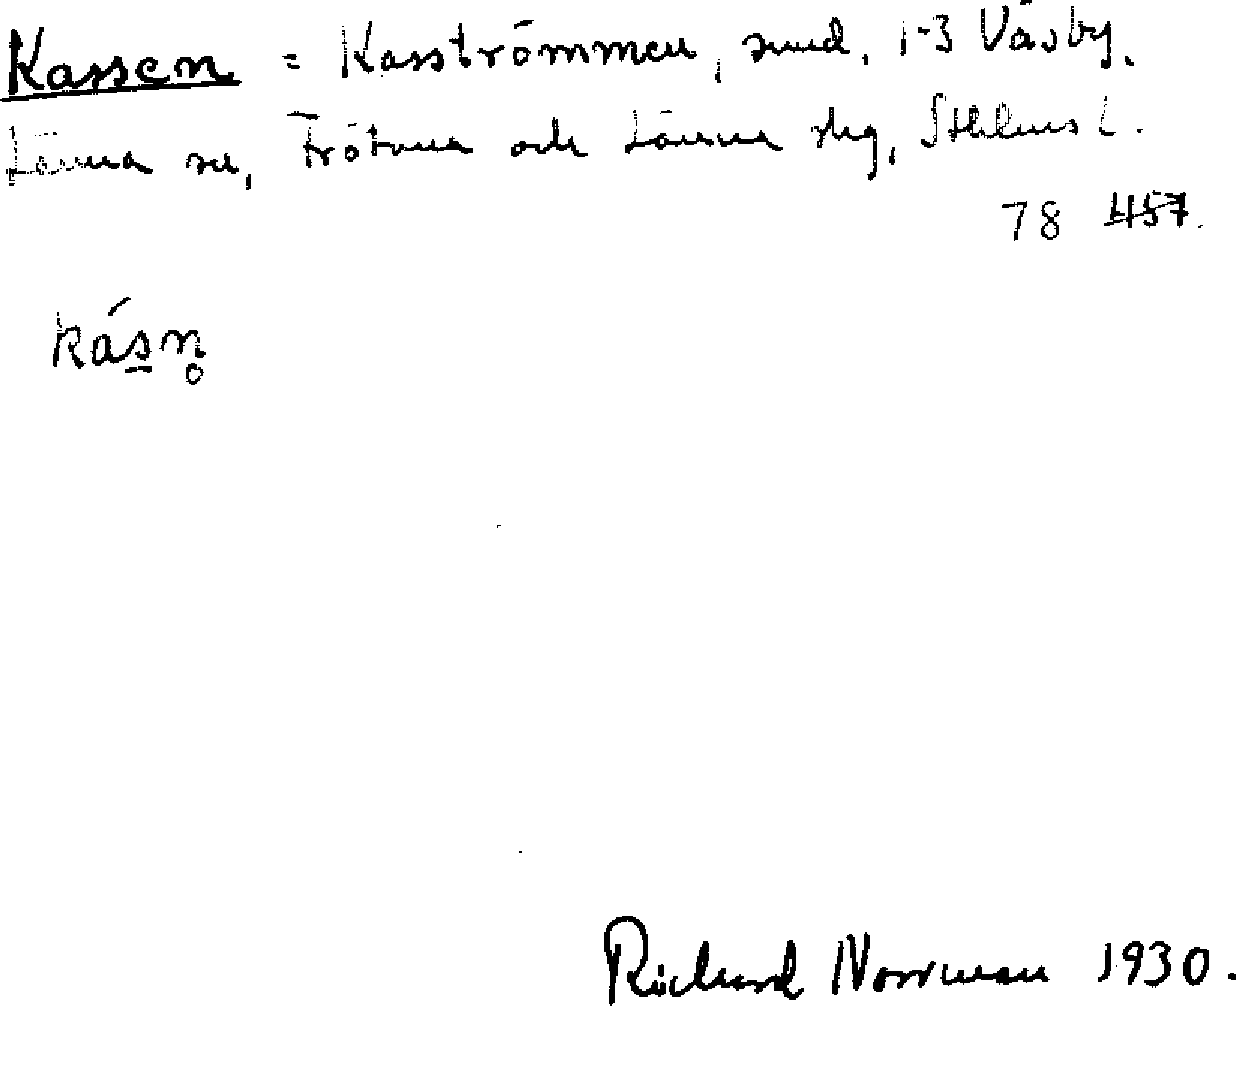 Kassen = Kasströmmen, sund, 1-3 Väsby.
Länna sn, Frötuna och Länna skg, Sthlms l.
78 457.
kásn̥
Richard Norrman 1930.